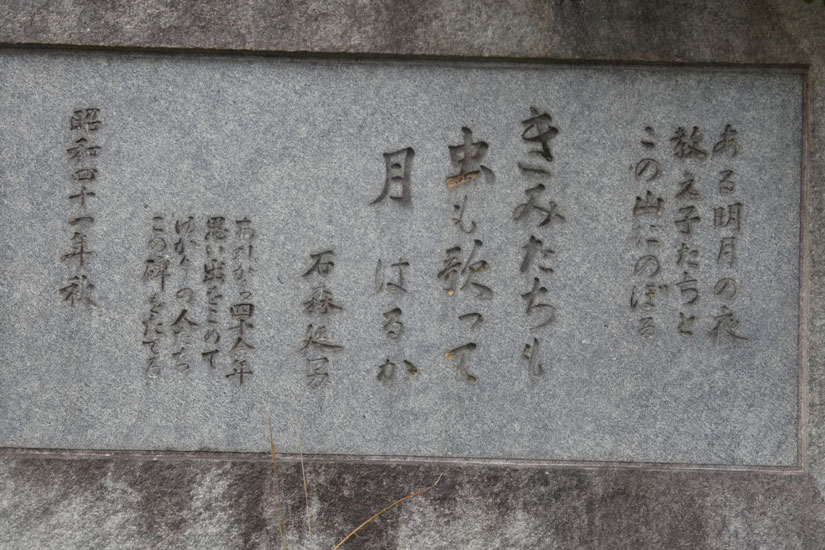 ある明月の夜
教え子たちと
この山にのぼる
きみたちも
虫も歌って
月 はるか
石森延男
あれから四十余年
思い出をこめて
ゆかりの人たち
この碑をたてる
昭和四十一年秋